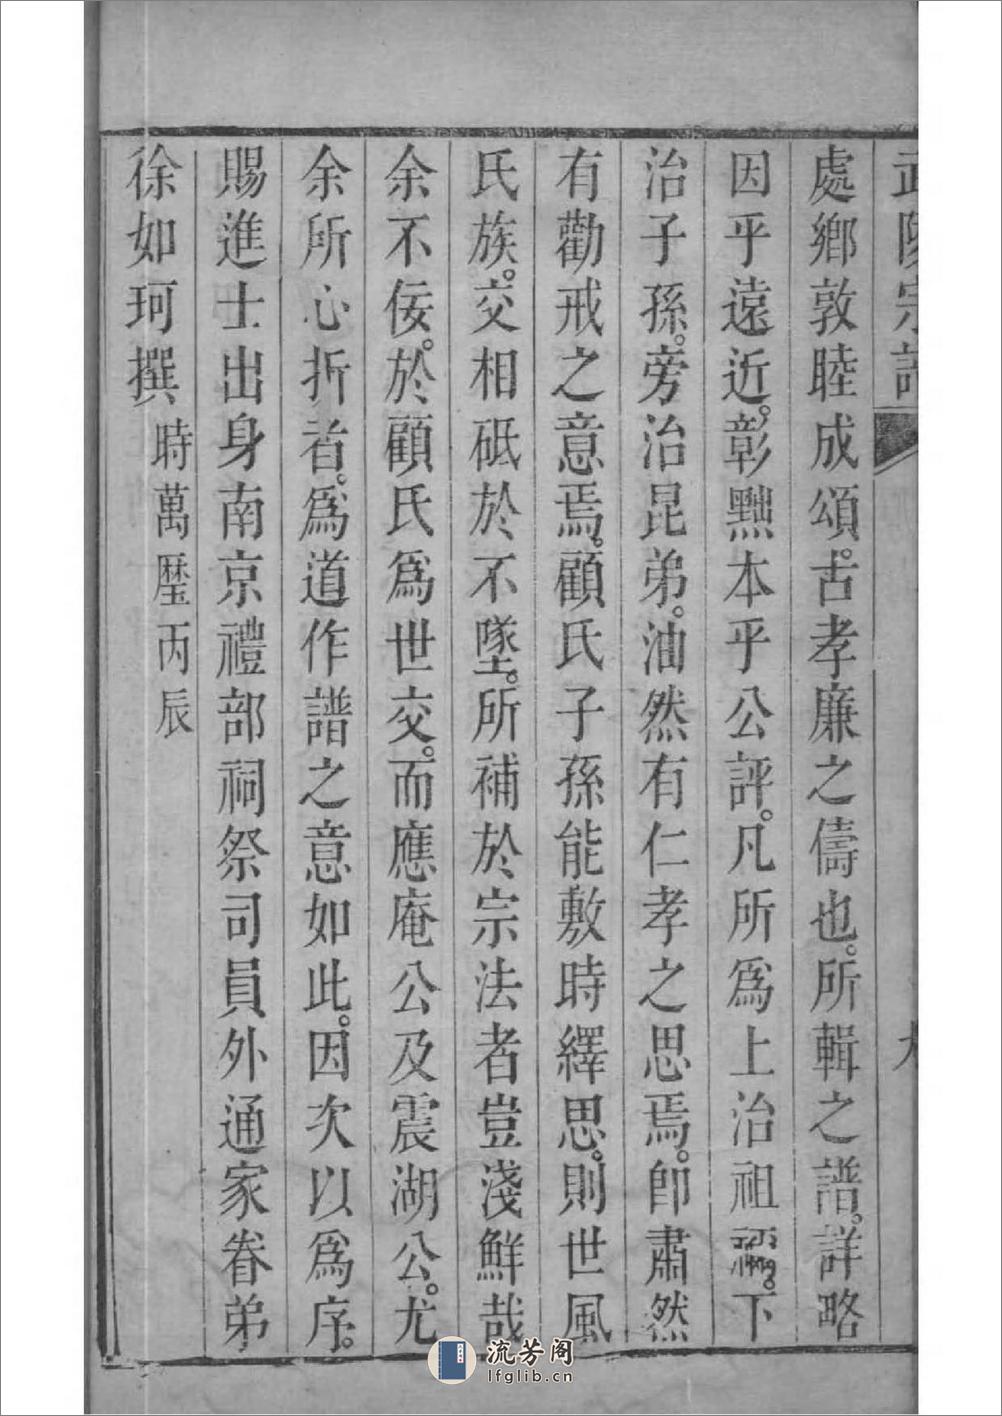 宗
處鄉敦睦成頌。古孝廉之儔也。所輯之譜。詳略
因乎遠近。彰黜本乎公評。凡所爲上治祖。下
治子孫。旁治昆弟。油然有仁孝之思焉。卽肅然
有勸戒之意焉。顧氏子孫能敷時繹思。則世風
氏族。交相砥於不墜。所補於宗法者豈淺鮮哉
余不佞。於顧氏爲世交。而應庵公及震湖公。尤
余所心折者。爲道作譜之意如此。因次以爲序。
賜進士出身南京禮部祠祭司員外通家眷弟
徐如珂撰 時萬曆丙辰
流芳阁
lfglib.cn